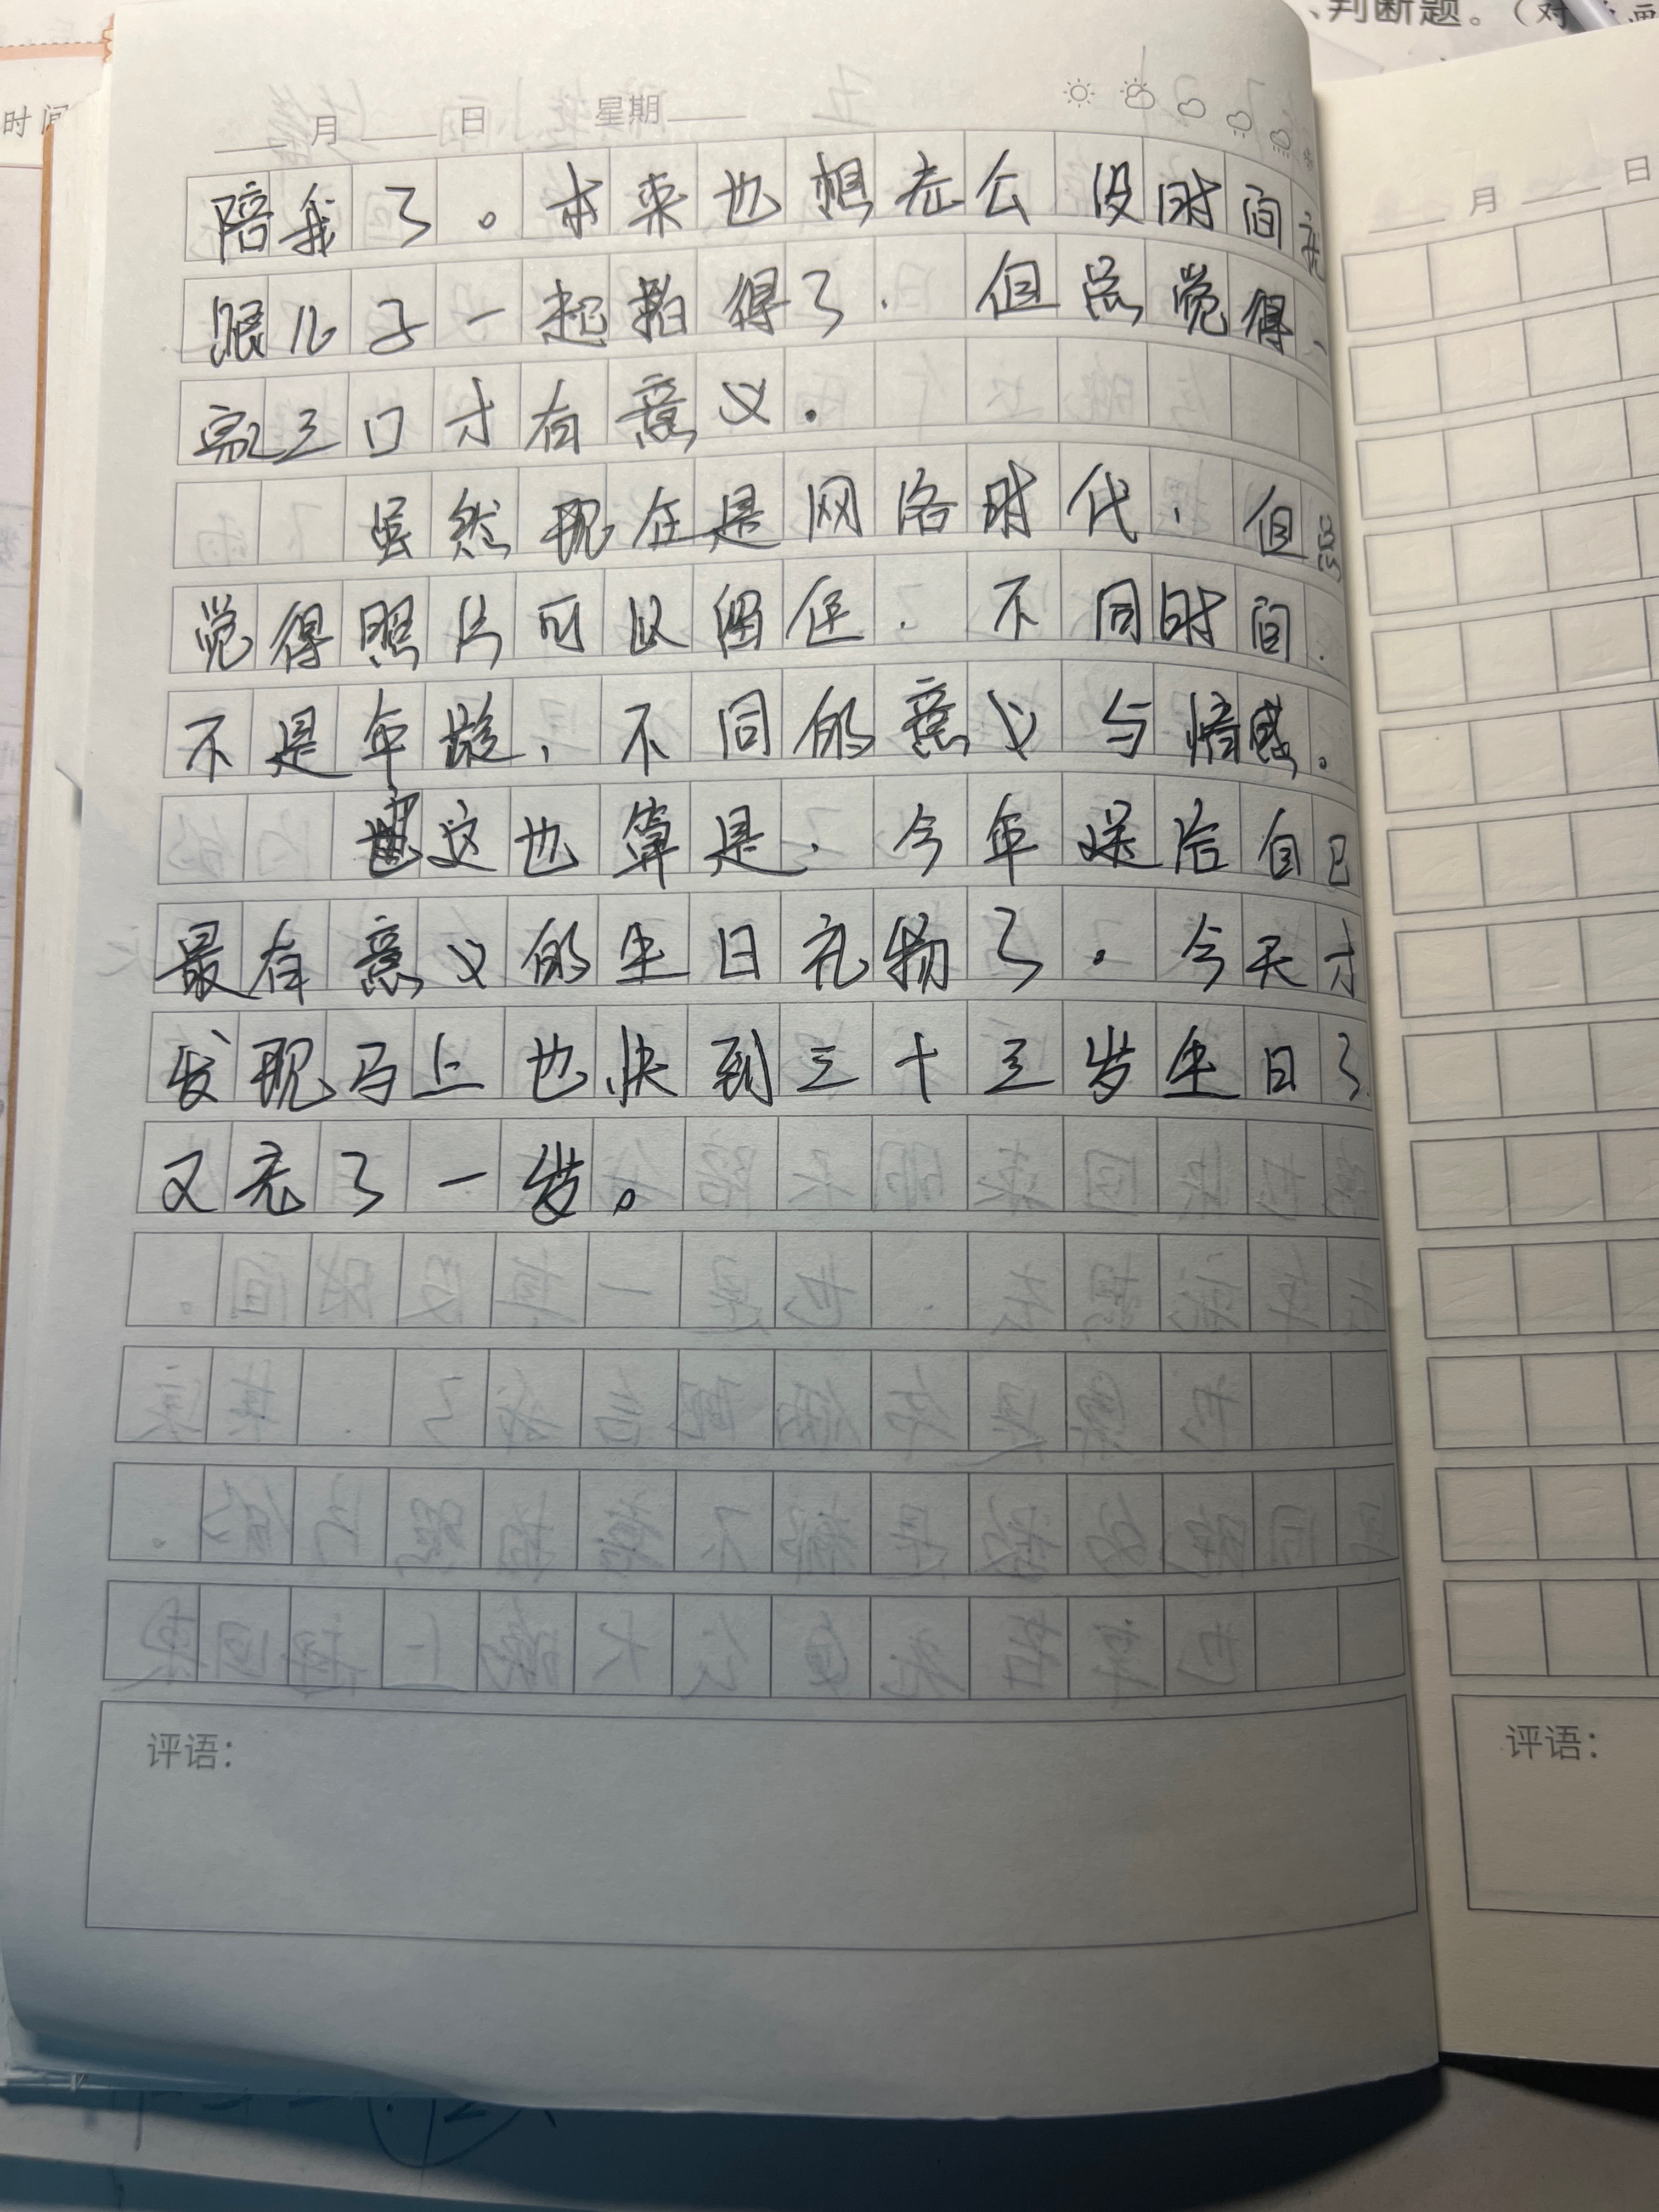 、判断题。（对
时间
月 日 星期
月 日
陪我了。本来也想老公没时间就
跟儿子一起拍得了.但总觉得一
家三口才有意义.
虽然现在是网络时代,但总
觉得照片可以留住.不同时间.
不是年龄,不同的意义与情感。
这也算是.今年送给自己
最有意义的生日礼物了.今天才
发现马上也快到三十三岁生日了.
又老了一岁。
评语:
评语: